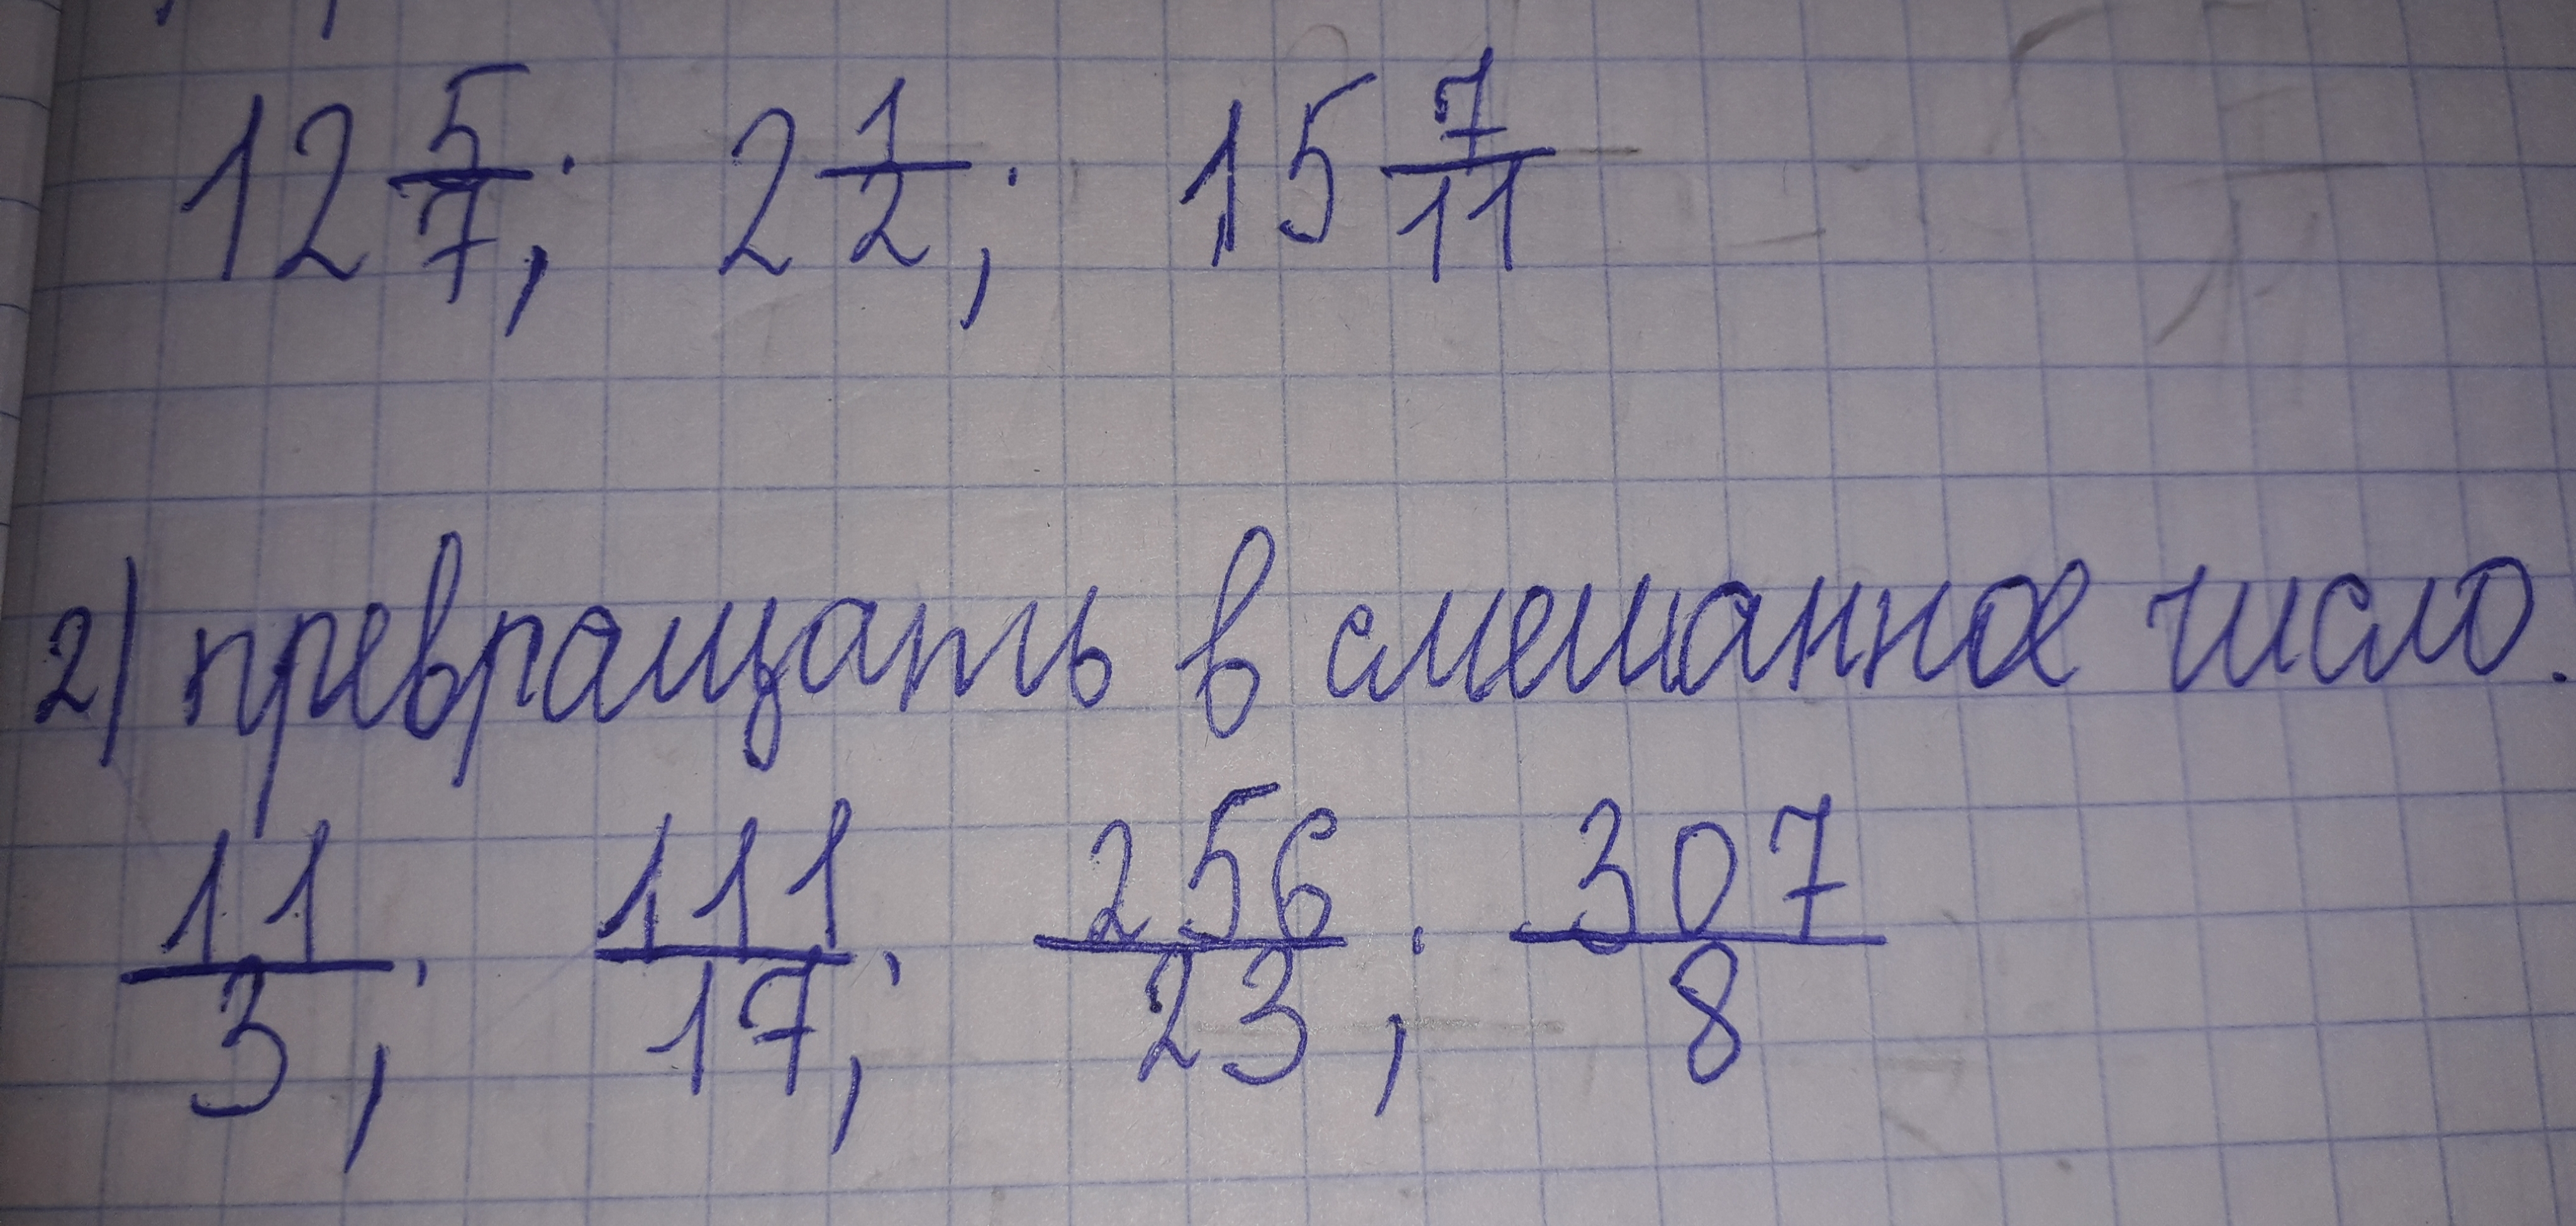 12 5/7; 2 1/2; 15 7/11
2) превращать в смешанное число.
11/3; 111/17; 256/23; 307/8